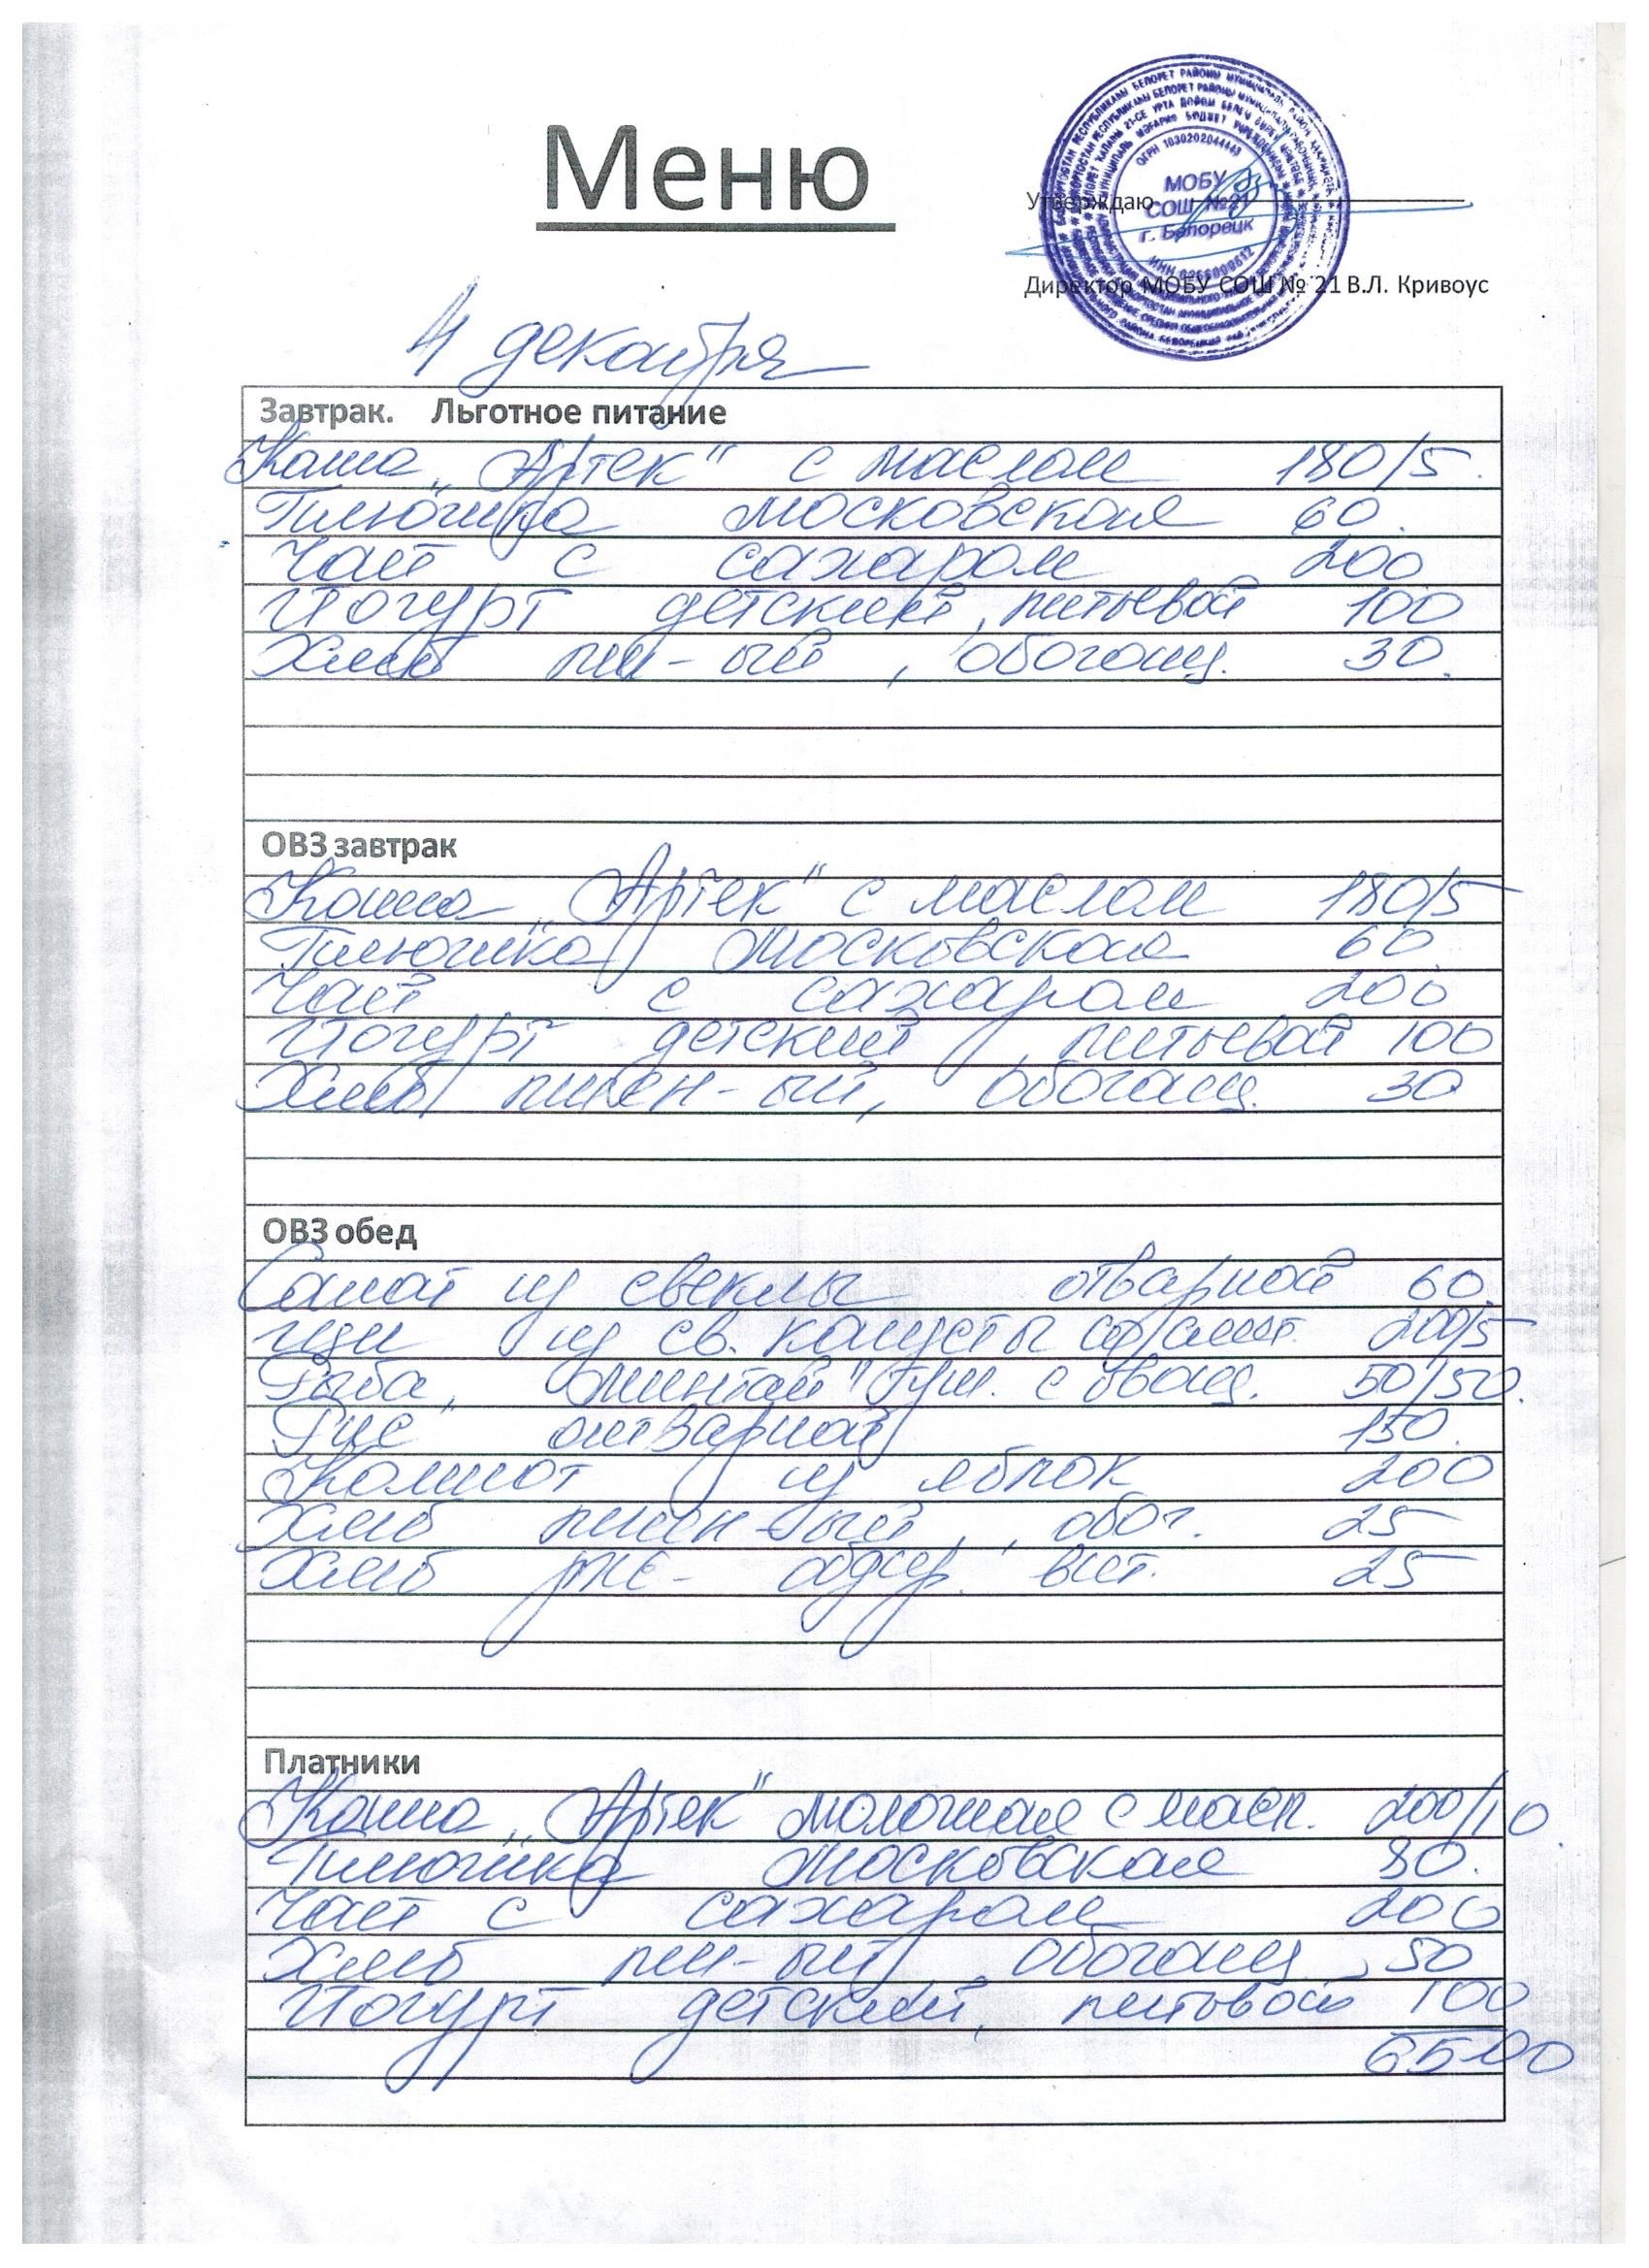 Меню
МОБУ
СОШ №21
г. Белорецк
ОГРН 1030202044443
Утверждаю
Директор МОБУ СОШ № 21 В.Л. Кривоус
4 декабря
Завтрак. Льготное питание
Каша „Артек" с маслом 180/5.
Плюшка московская 60.
Чай с сахаром 200
Йогурт детский, питьевой 100
Хлеб пш-ый, обогащ. 30.
ОВЗ завтрак
Каша „Артек" с маслом 180/5
Плюшка московская 60.
Чай с сахаром 200
Йогурт детский, питьевой 100
Хлеб пшен-ый, обогащ. 30
ОВЗ обед
Салат из свеклы отварной 60
Щи из св. капусты со смет. 200/5
Рыба „Минтай" туш. с овощ. 50/50.
Рис отварной 150.
Компот из яблок 200
Хлеб пшен-ый, обог. 25
Хлеб рж- обдир. вит. 25
Платники
Каша „Артек" молочная с масл. 200/10.
Плюшка московская 80.
Чай с сахаром 200
Хлеб пш-ый, обогащ, 50
Йогурт детский, питьевой 100
6500